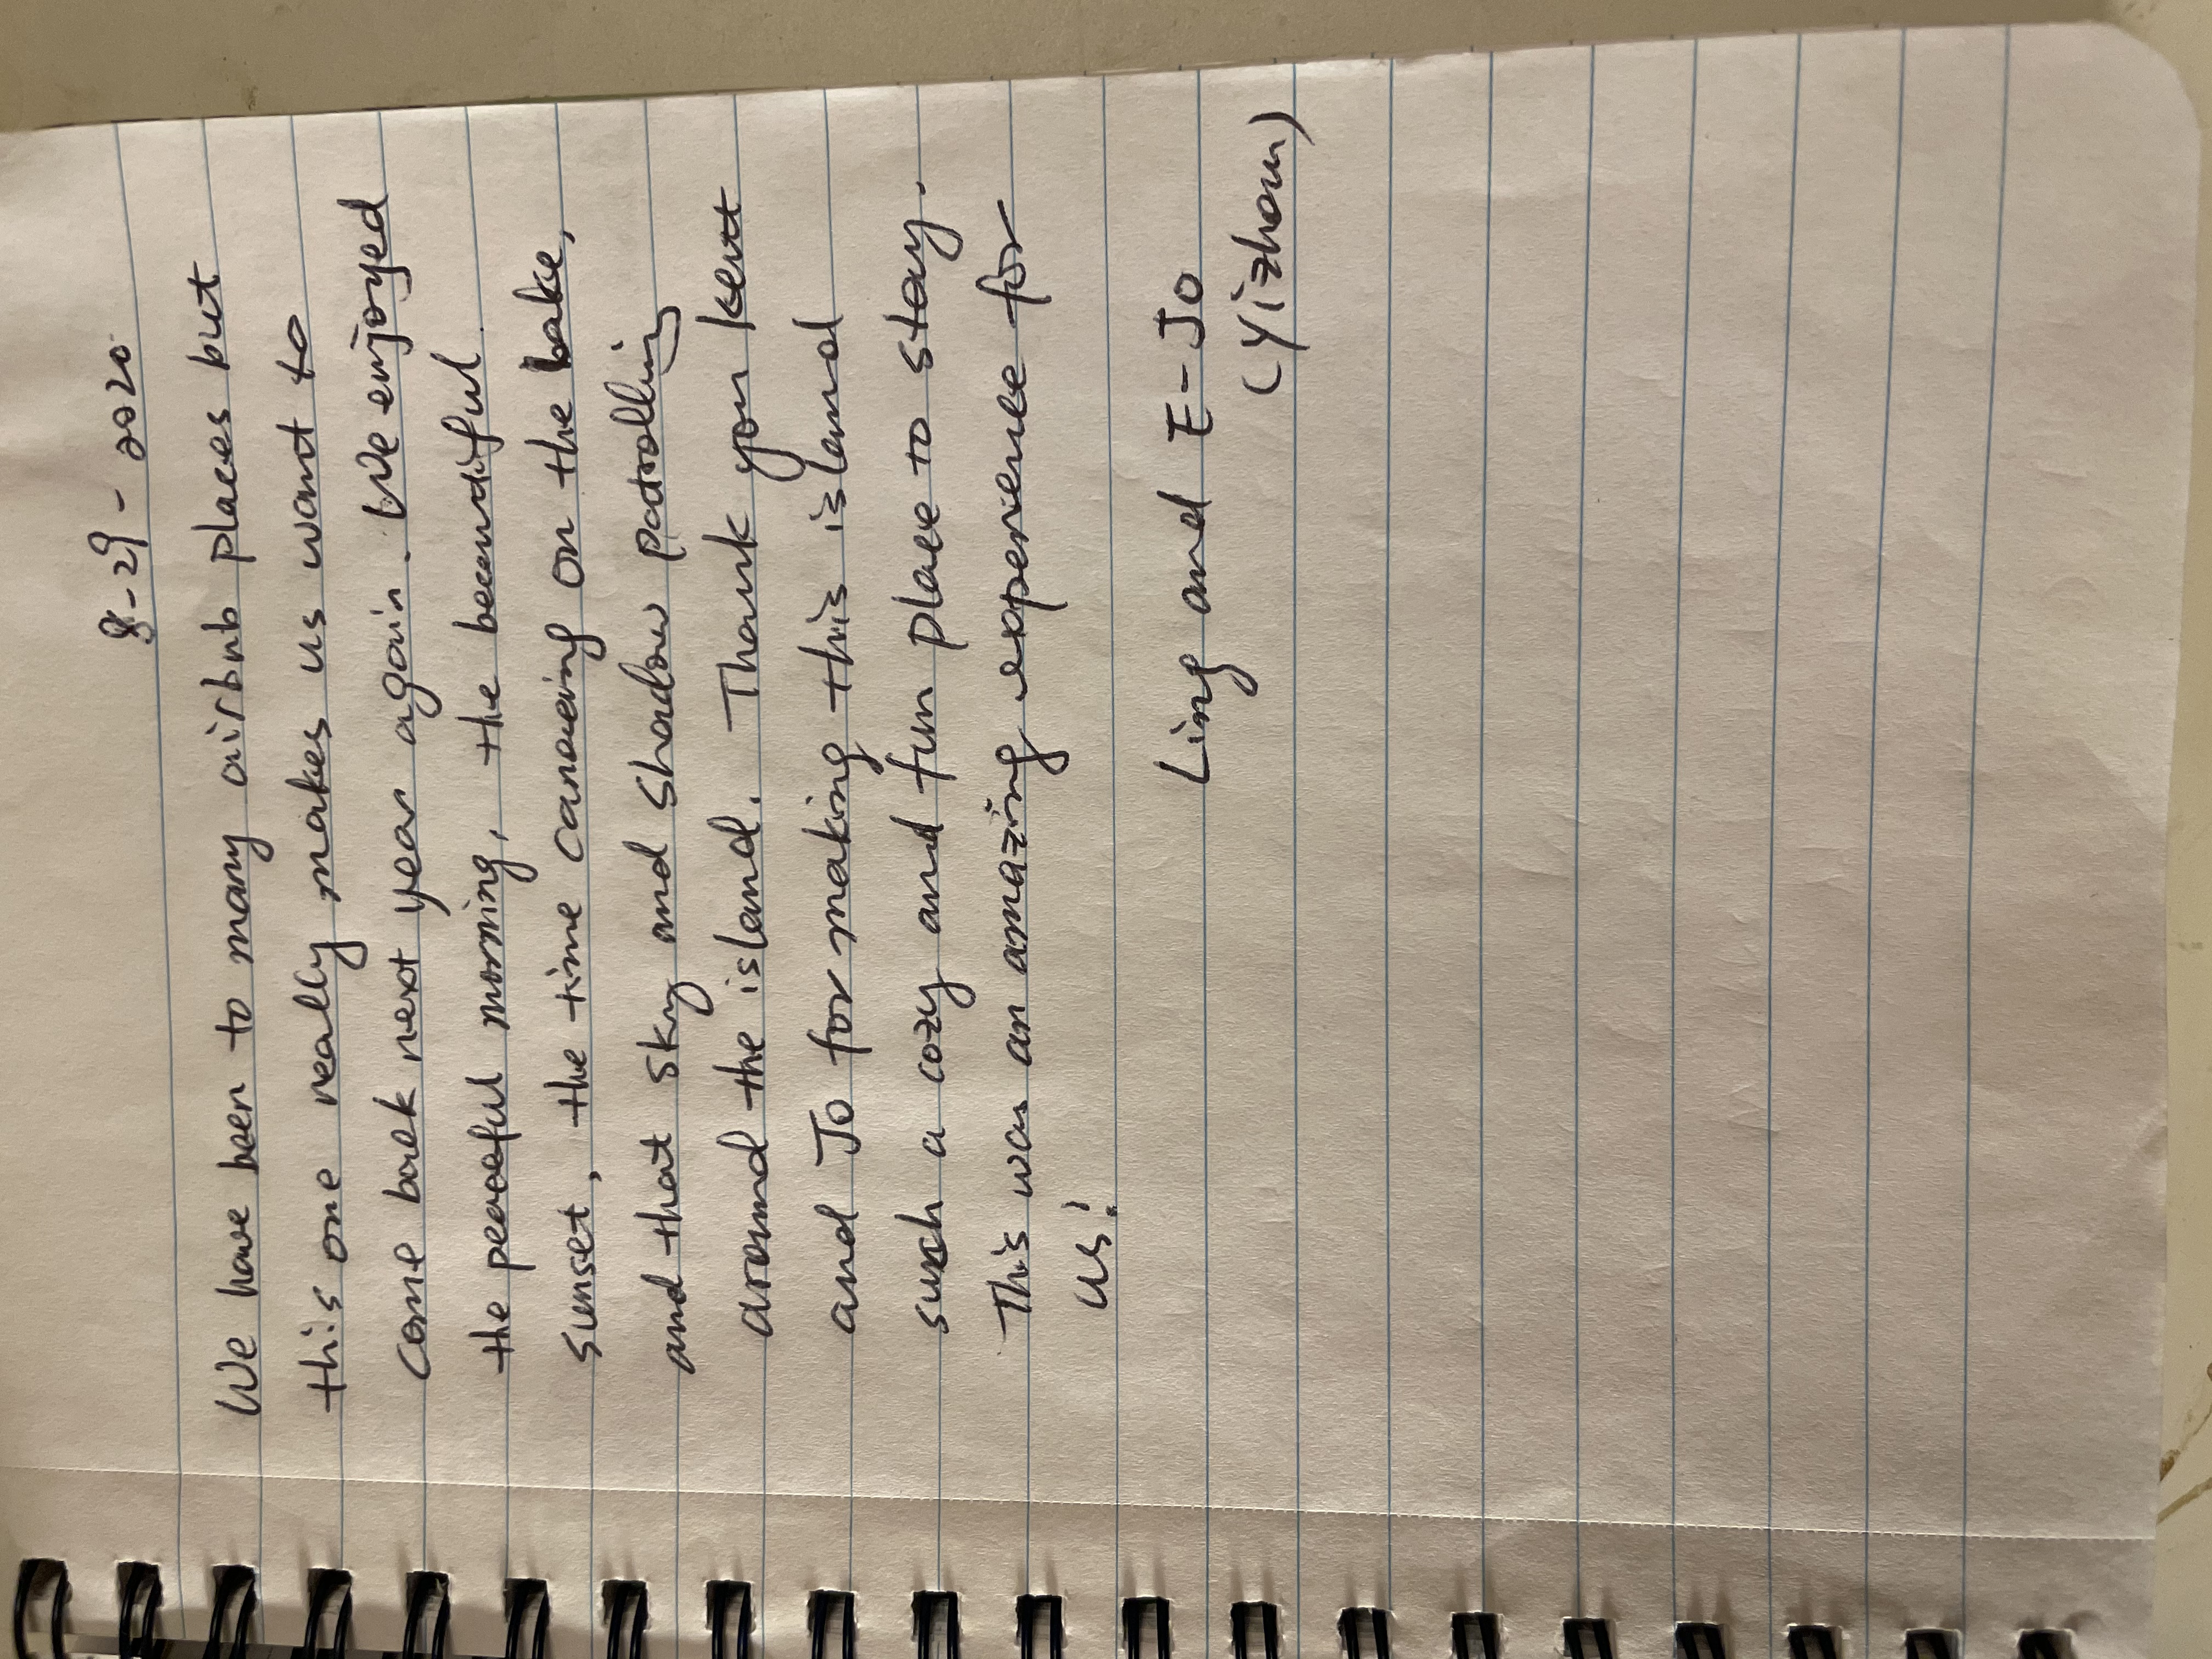 8-29-2020
We have been to many airbnb places but
this one really makes us want to
come back next year again. We enjoyed
the peaceful morning, the beautiful
sunset, the time canoeing on the lake,
and that sky and shadow patrolling
around the island. Thank you Kent
and Jo for making this island
such a cozy and fun place to stay.
This was an amazing experience for
us!
Ling and E-Jo
(Yizhou)